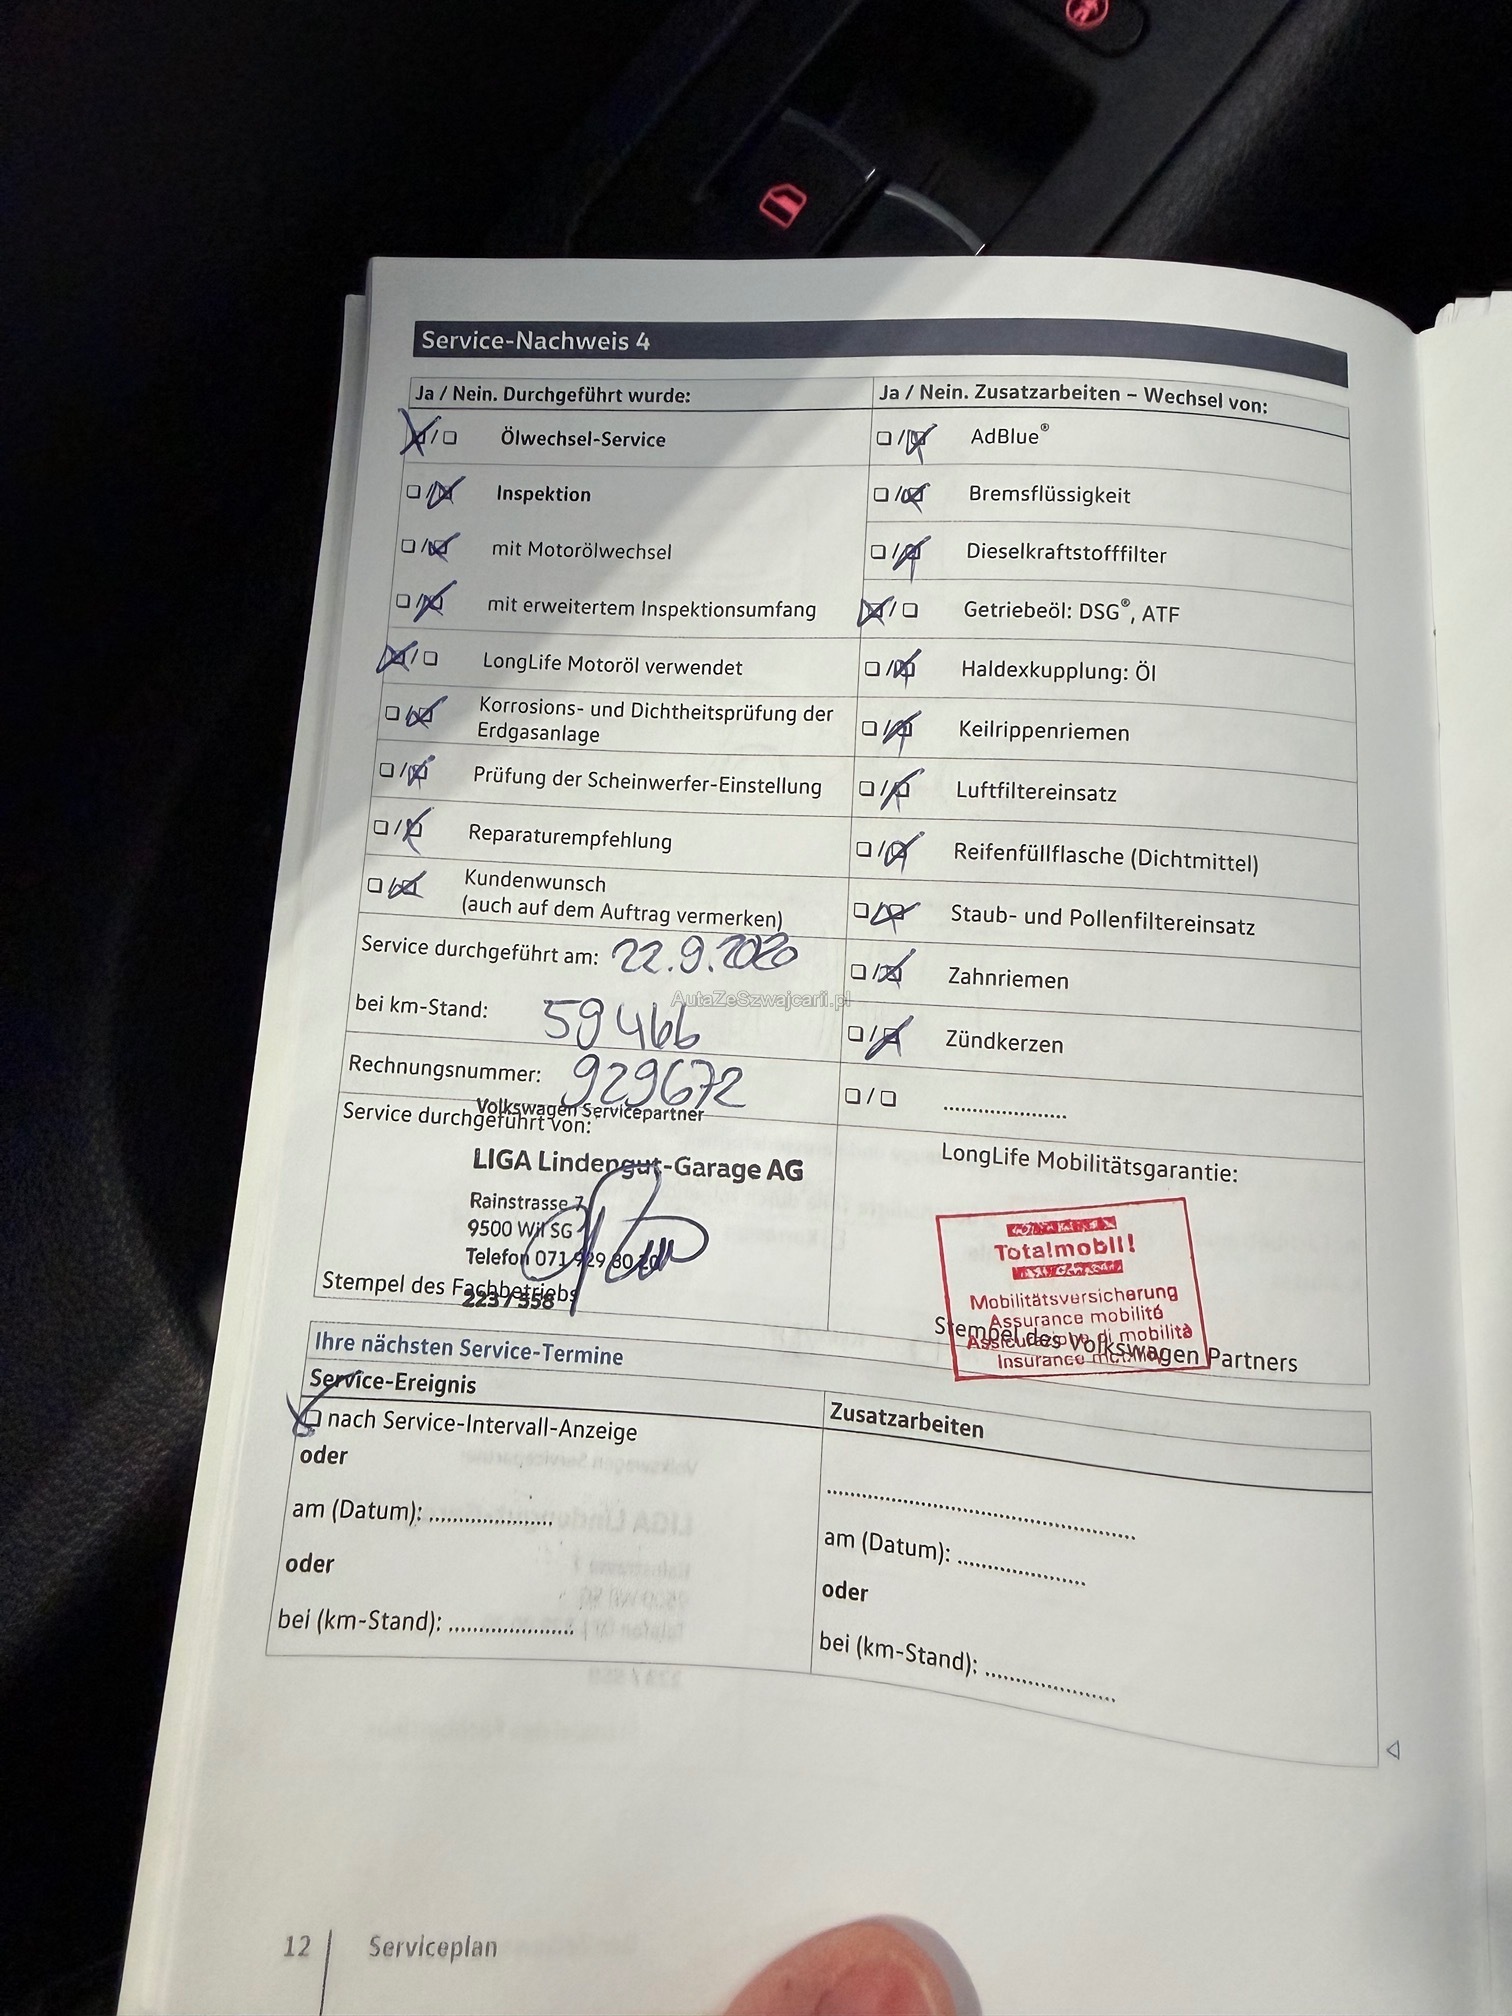 Service-Nachweis 4
Ja / Nein. Durchgeführt wurde:
/ Ölwechsel-Service
/ Inspektion
/ mit Motorölwechsel
/ mit erweitertem Inspektionsumfang
/ LongLife Motoröl verwendet
/ Korrosions- und Dichtheitsprüfung der
Erdgasanlage
/ Prüfung der Scheinwerfer-Einstellung
/ Reparaturempfehlung
/ Kundenwunsch
(auch auf dem Auftrag vermerken)
Service durchgeführt am: 22.9.2020
bei km-Stand: 59466
Rechnungsnummer: 929672
Service durchgeführt von:
Volkswagen Servicepartner
LIGA Lindengut-Garage AG
Rainstrasse 7
9500 Wil SG
Telefon 071 929 80 20
Stempel des Fachbetriebs
223 / 558
Ja / Nein. Zusatzarbeiten – Wechsel von:
/ AdBlue®
/ Bremsflüssigkeit
/ Dieselkraftstofffilter
/ Getriebeöl: DSG®, ATF
/ Haldexkupplung: Öl
/ Keilrippenriemen
/ Luftfiltereinsatz
/ Reifenfüllflasche (Dichtmittel)
/ Staub- und Pollenfiltereinsatz
/ Zahnriemen
/ Zündkerzen
/ ....................
LongLife Mobilitätsgarantie:
Totalmobil!
Mobilitätsversicherung
Assurance mobilité
Assicurazione di mobilità
Insurance
Stempel des Volkswagen Partners
AutaZeSzwajcarii.pl
Ihre nächsten Service-Termine
Service-Ereignis
nach Service-Intervall-Anzeige
oder
am (Datum): ....................
oder
bei (km-Stand): ....................
Zusatzarbeiten
..................................................
am (Datum): ....................
oder
bei (km-Stand): ....................
12 Serviceplan